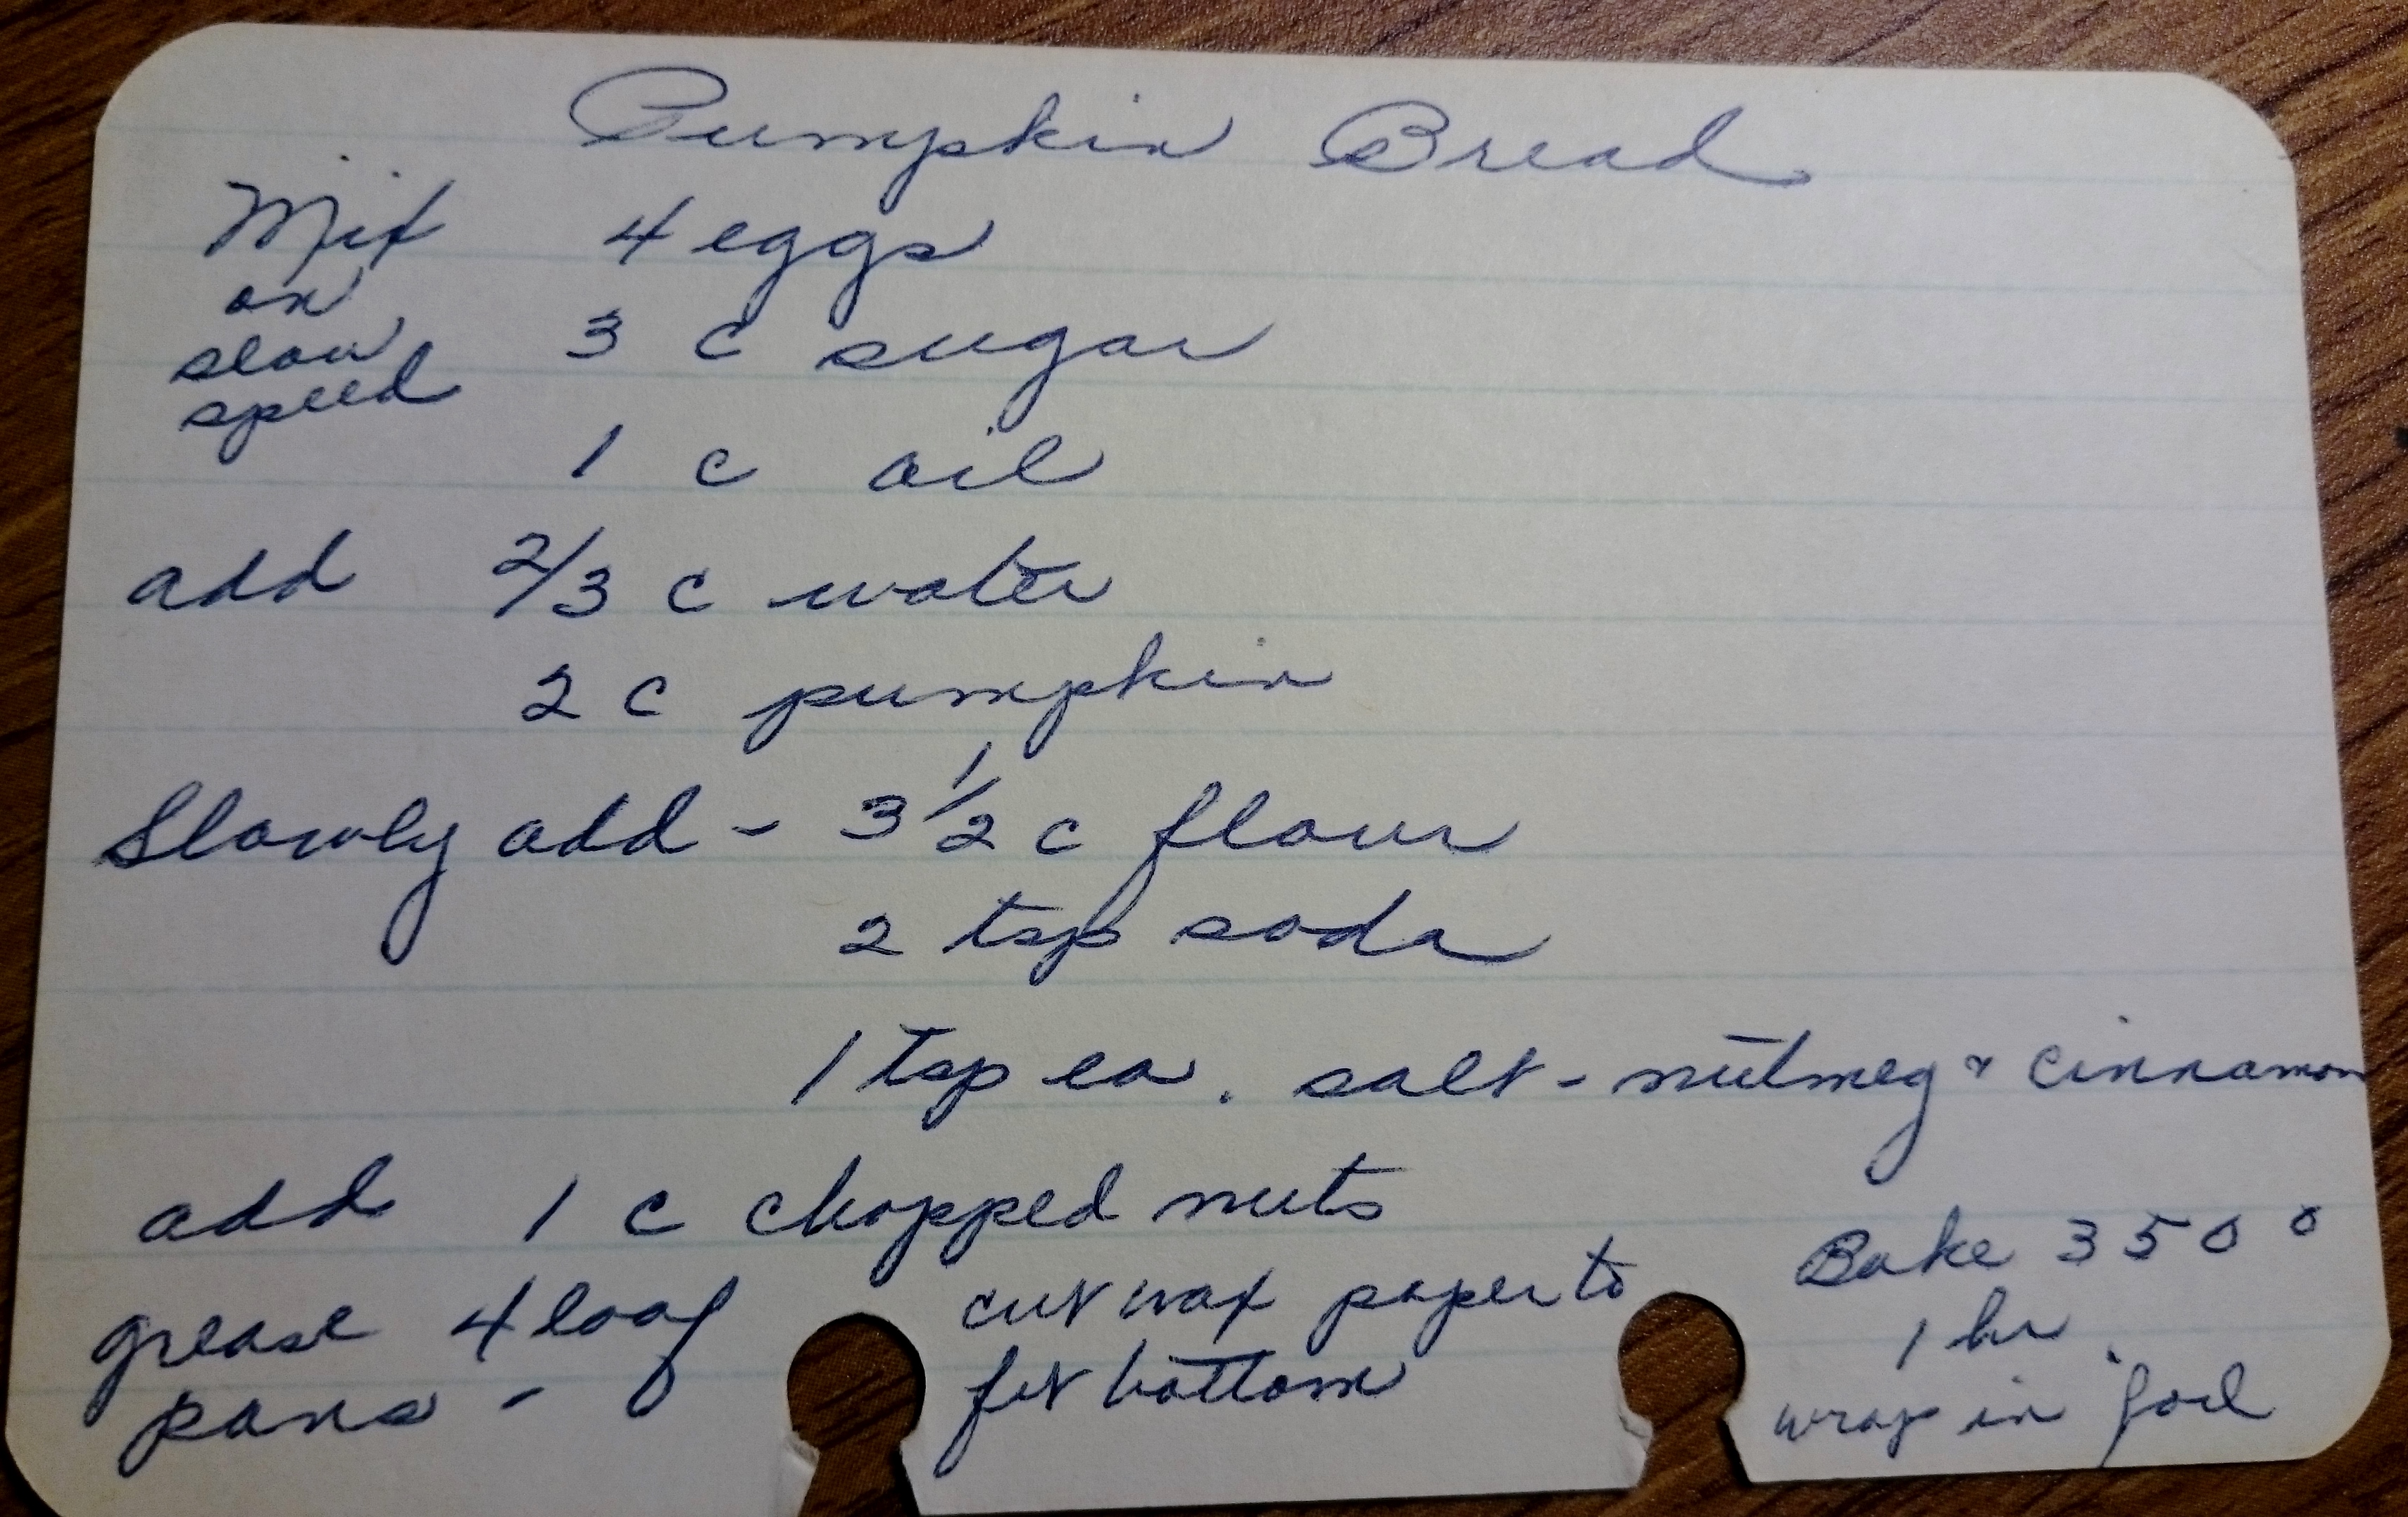 Pumpkin Bread
Mix 4 eggs
on
slow 3 c sugar
speed
1 c oil
add 2/3 c water
2 c pumpkin
Slowly add - 3 1/2 c flour
2 tsp soda
1 tsp ea. salt - nutmeg & cinnamon
add 1 c chopped nuts
grease 4 loaf
pans -
cut wax paper to
fit bottom
Bake 350°
1 hr.
wrap in foil